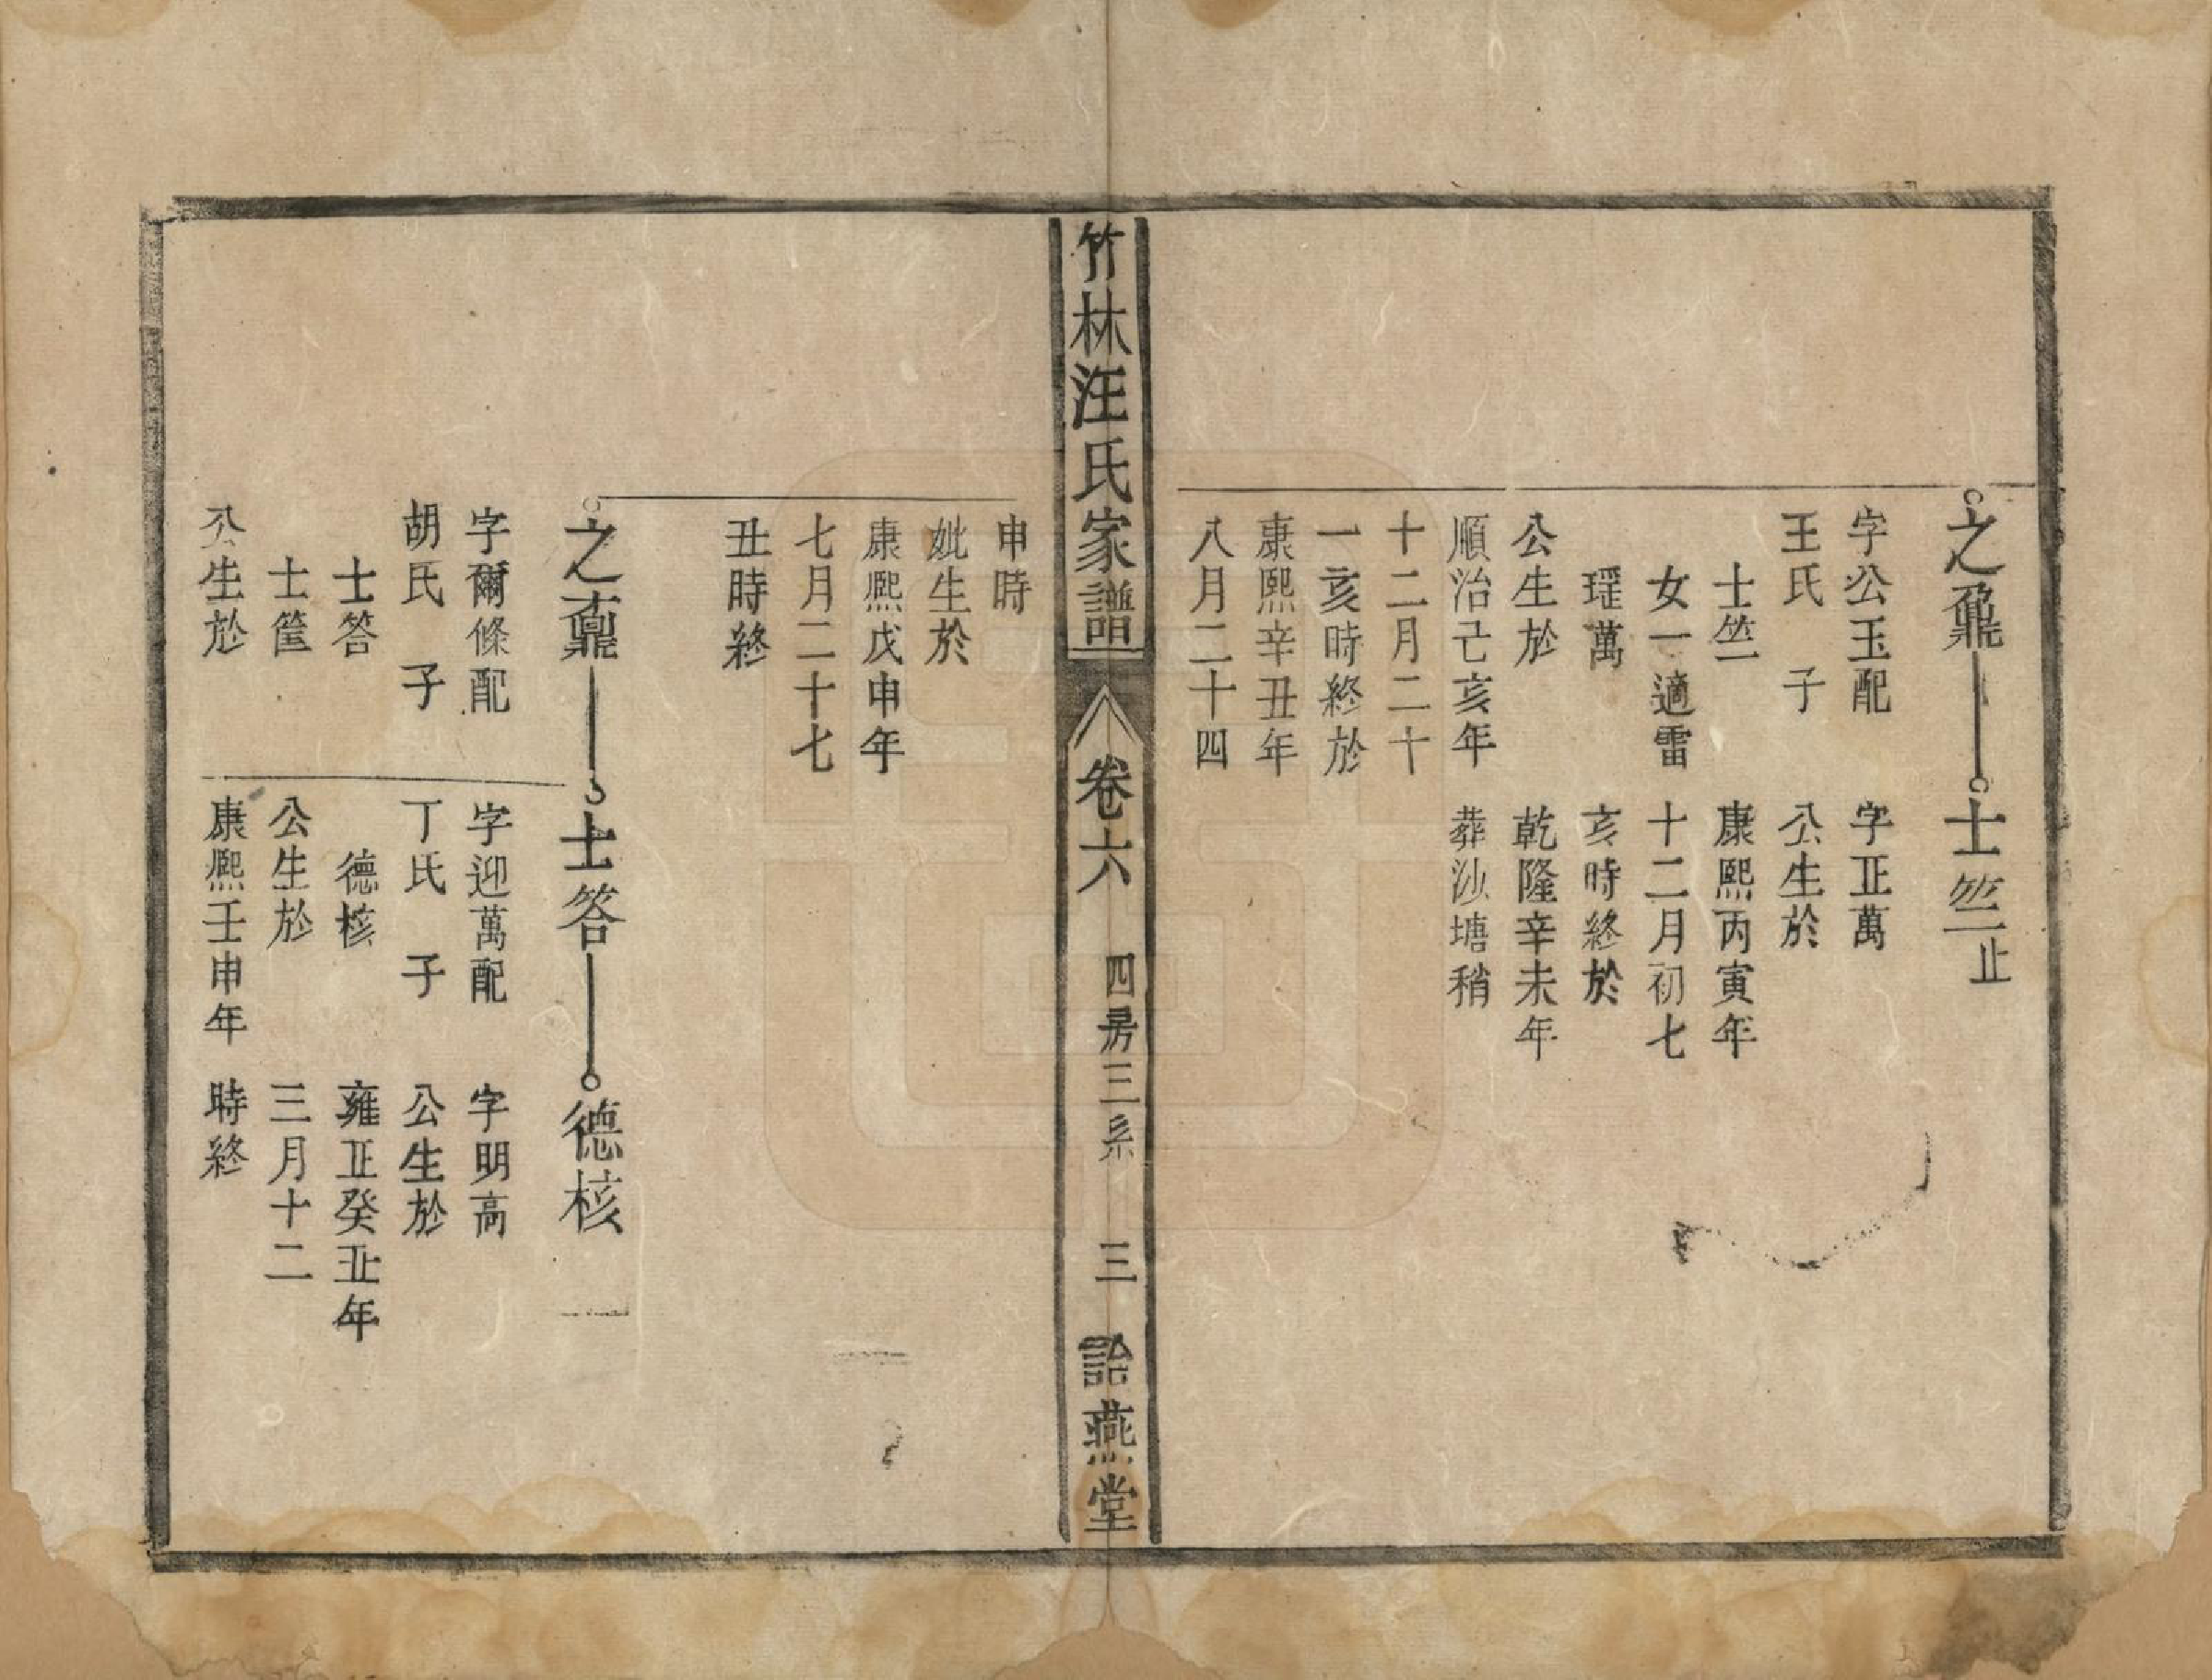 之鼐
士竺止
字公玉配
王氏　子
士竺
女一適雷
瑆萬
公生於
順治己亥年
十二月二十
一亥時終於
康熙辛丑年
八月二十四
字正萬
公生於
康熙丙寅年
十二月初七
亥時終於
乾隆辛未年
葬沙塘稍
竹林汪氏家譜
卷六
四房三系
三
詒燕堂
申時
妣生於
康熙戊申年
七月二十七
丑時終
之鼒
士答
德核
字爾條配
胡氏　子
士答
士筐
公生於
字迎萬配
丁氏　子
德核
公生於
康熙壬申年
字明高
公生於
雍正癸丑年
三月十二
時終